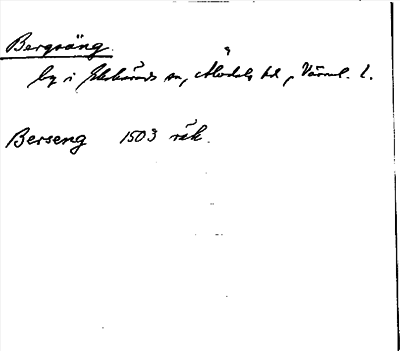 Bergsäng.
by i Ekshärads sn, Älvdals hd, Värml. l.
Berseng 1503 räk.